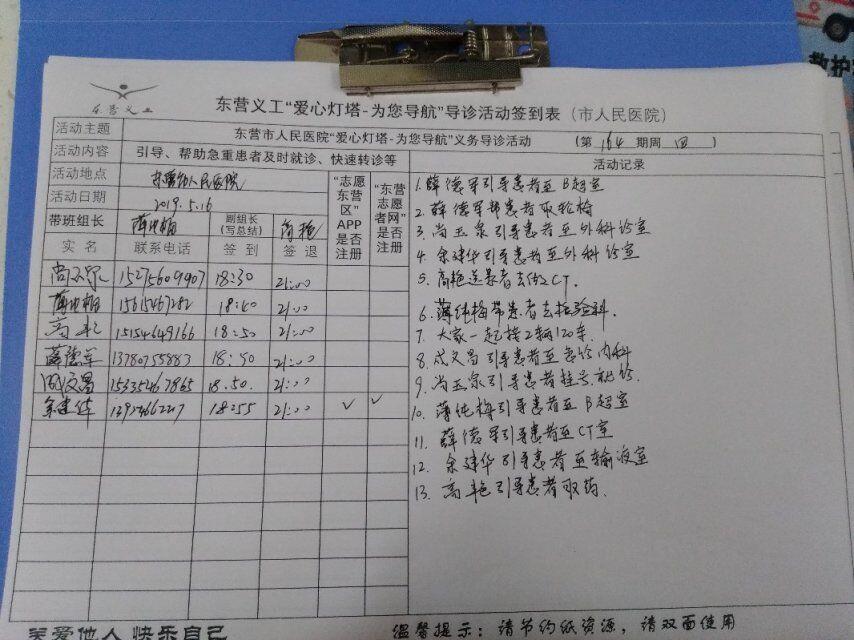 东营义工
救护
东营义工“爱心灯塔-为您导航”导诊活动签到表（市人民医院）
活动主题 东营市人民医院“爱心灯塔-为您导航”义务导诊活动 （第 164 期周 四 ）
活动内容 引导、帮助急重患者及时就诊、快速转诊等
活动地点 东营市人民医院
活动日期 2019.5.16
带班组长 薄纯梅 副组长（写总结） 高艳
“志愿东营区”APP是否注册
“东营志愿者网”是否注册
实名 联系电话 签到 签退
尚玉泉 15275609907 18:30 21:00
薄纯梅 18:40 21:00
高艳 15154649166 18:50 21:00
薛德军 13780755883 18:50 21:00
成文昌 15335467865 18:50. 21:00
余建华 18:55 21:00 ✓ ✓
活动记录
1. 薛德军引导患者至B超室
2. 薛德军帮患者取轮椅
3. 尚玉泉引导患者至外科诊室
4. 余建华引导患者至外科诊室
5. 高艳送患者去做CT.
6. 薄纯梅带患者去检验科.
7. 大家一起接2辆120车.
8. 成文昌引导患者至急诊内科
9. 尚玉泉引导患者挂号就诊.
10. 薄纯梅引导患者至B超室
11. 薛德军引导患者至CT室
12. 余建华引导患者至输液室
13. 高艳引导患者取药.
关爱他人 快乐自己
温馨提示：请节约纸资源，请双面使用